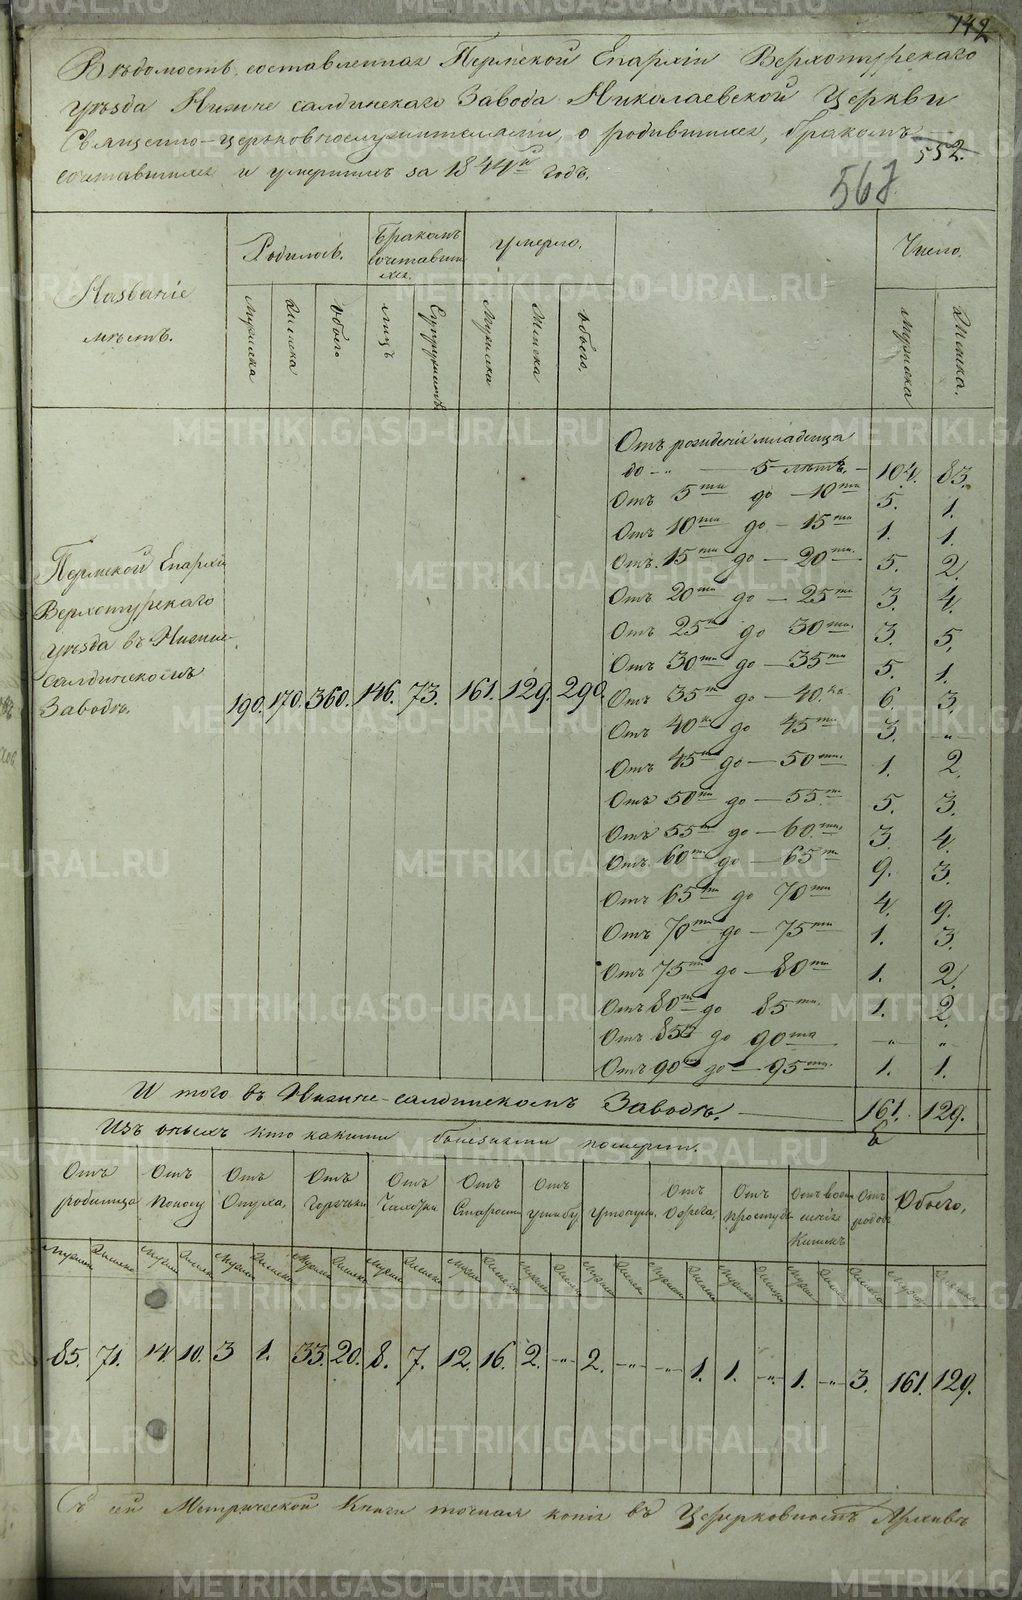 142
Вѣдомость, составленная Пермской Епархіи Верхотурскаго
уѣзда Нижне салдинскаго Завода Николаевской Церкви
Священно-церковнослужителями, о родившихся, бракомъ
552.
сочетавшихся и умершихъ за 1844й годъ.
567
Названіе
мѣстъ.
Родилось.
Бракомъ
сочетавши
хся.
Умерло.
Число.
Мужска
Женска
Обоего
лицъ
Супружествъ
Мужска
Женска
Обоего.
Мужска
Женска.
Отъ рожденія младенца
до -„- 5 лѣтъ. 104. 83.
Отъ 5ти до 10ти 5. 1.
Отъ 10ти до 15ти 1. 1.
Отъ 15ти до 20ти 5. 2.
Отъ 20ти до 25ти 3. 4.
Отъ 25ти до 30ти 3. 5.
Отъ 30ти до 35ти 5. 1.
Отъ 35ти до 40ка 6. 3.
Отъ 40ка до 45ти 3. -„-
Отъ 45ти до 50ти 1. 2.
Отъ 50ти до 55ти 5. 3.
Отъ 55ти до 60ти 3. 4.
Отъ 60ти до 65ти 9. 3.
Отъ 65ти до 70ти 4. 9.
Отъ 70ти до 75ти 1. 3.
Отъ 75ти до 80ти 1. 2.
Отъ 80ти до 85ти 1. 2.
Отъ 85ти до 90та -„- -„-
Отъ 90та до 95ти 1. 1.
Пермской Епархіи
Верхотурскаго
уѣзда въ Нижне-
салдинскомъ
Заводѣ.
190. 170. 360. 146. 73. 161. 129. 290.
И того въ Нижне-салдинскомъ Заводѣ. 161. 129.
Изъ оныхъ кто какими болезнями померли.
Отъ
родимца
Отъ
поносу
Отъ
Опуха,
Отъ
Горячки
Отъ
Чахотки
Отъ
Старости
Отъ
ушибу
Отъ
простуды
Отъ
родовъ
Обоего,
85. 71. 14. 10. 3 1. 33. 20. 8. 7. 12. 16. 2. -„- 2. -„- -„- 1. 1. -„- 1. -„- 3. 161. 129.
Съ сей Метрической Книги точная копія въ Церковномъ Архивѣ
METRIKI.GASO-URAL.RU